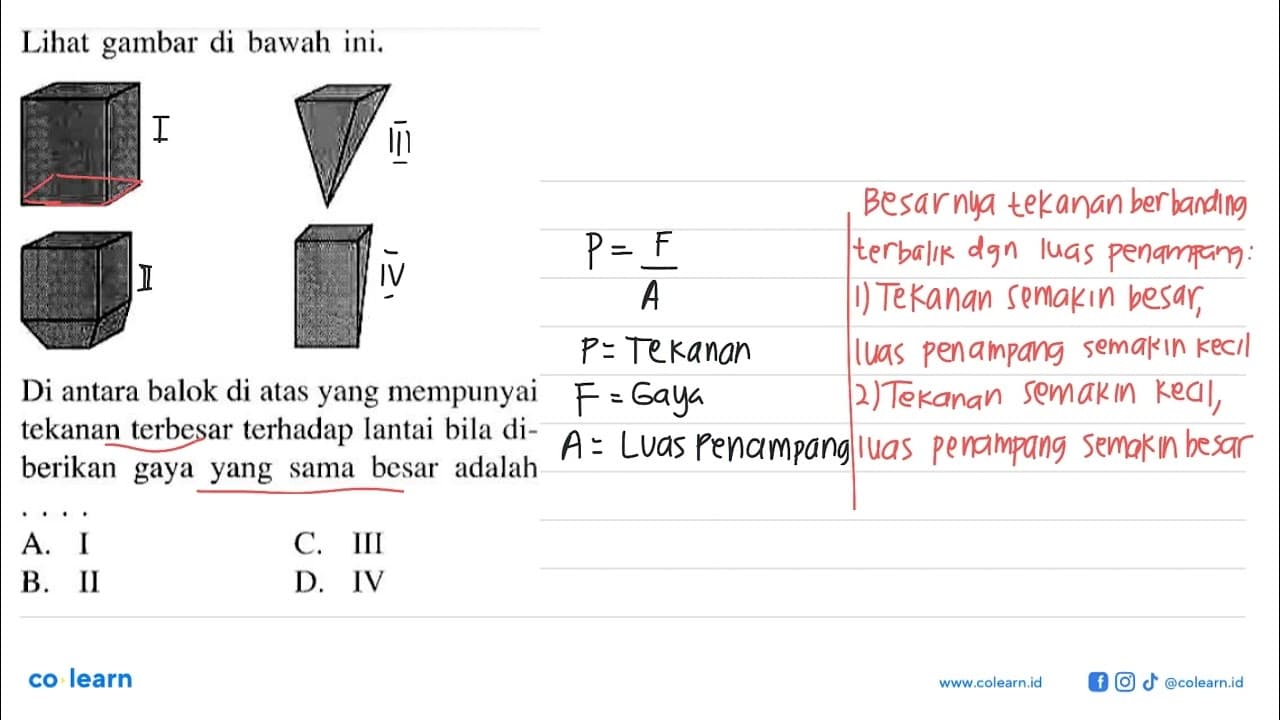 Lihat gambar di bawah ini.
I
III
II
IV
Di antara balok di atas yang mempunyai
tekanan terbesar terhadap lantai bila di-
berikan gaya yang sama besar adalah
. . . .
A. I
C. III
B. II
D. IV
P = F
A
P = Tekanan
F = Gaya
A = Luas Penampang
Besarnya tekanan berbanding
terbalik dgn luas penampang:
1) Tekanan semakin besar,
luas penampang semakin kecil
2) Tekanan semakin kecil,
luas penampang semakin besar
co learn
www.colearn.id
@colearn.id